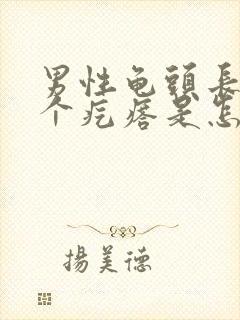 男性龟頭長
个疙瘩是怎
揚美德